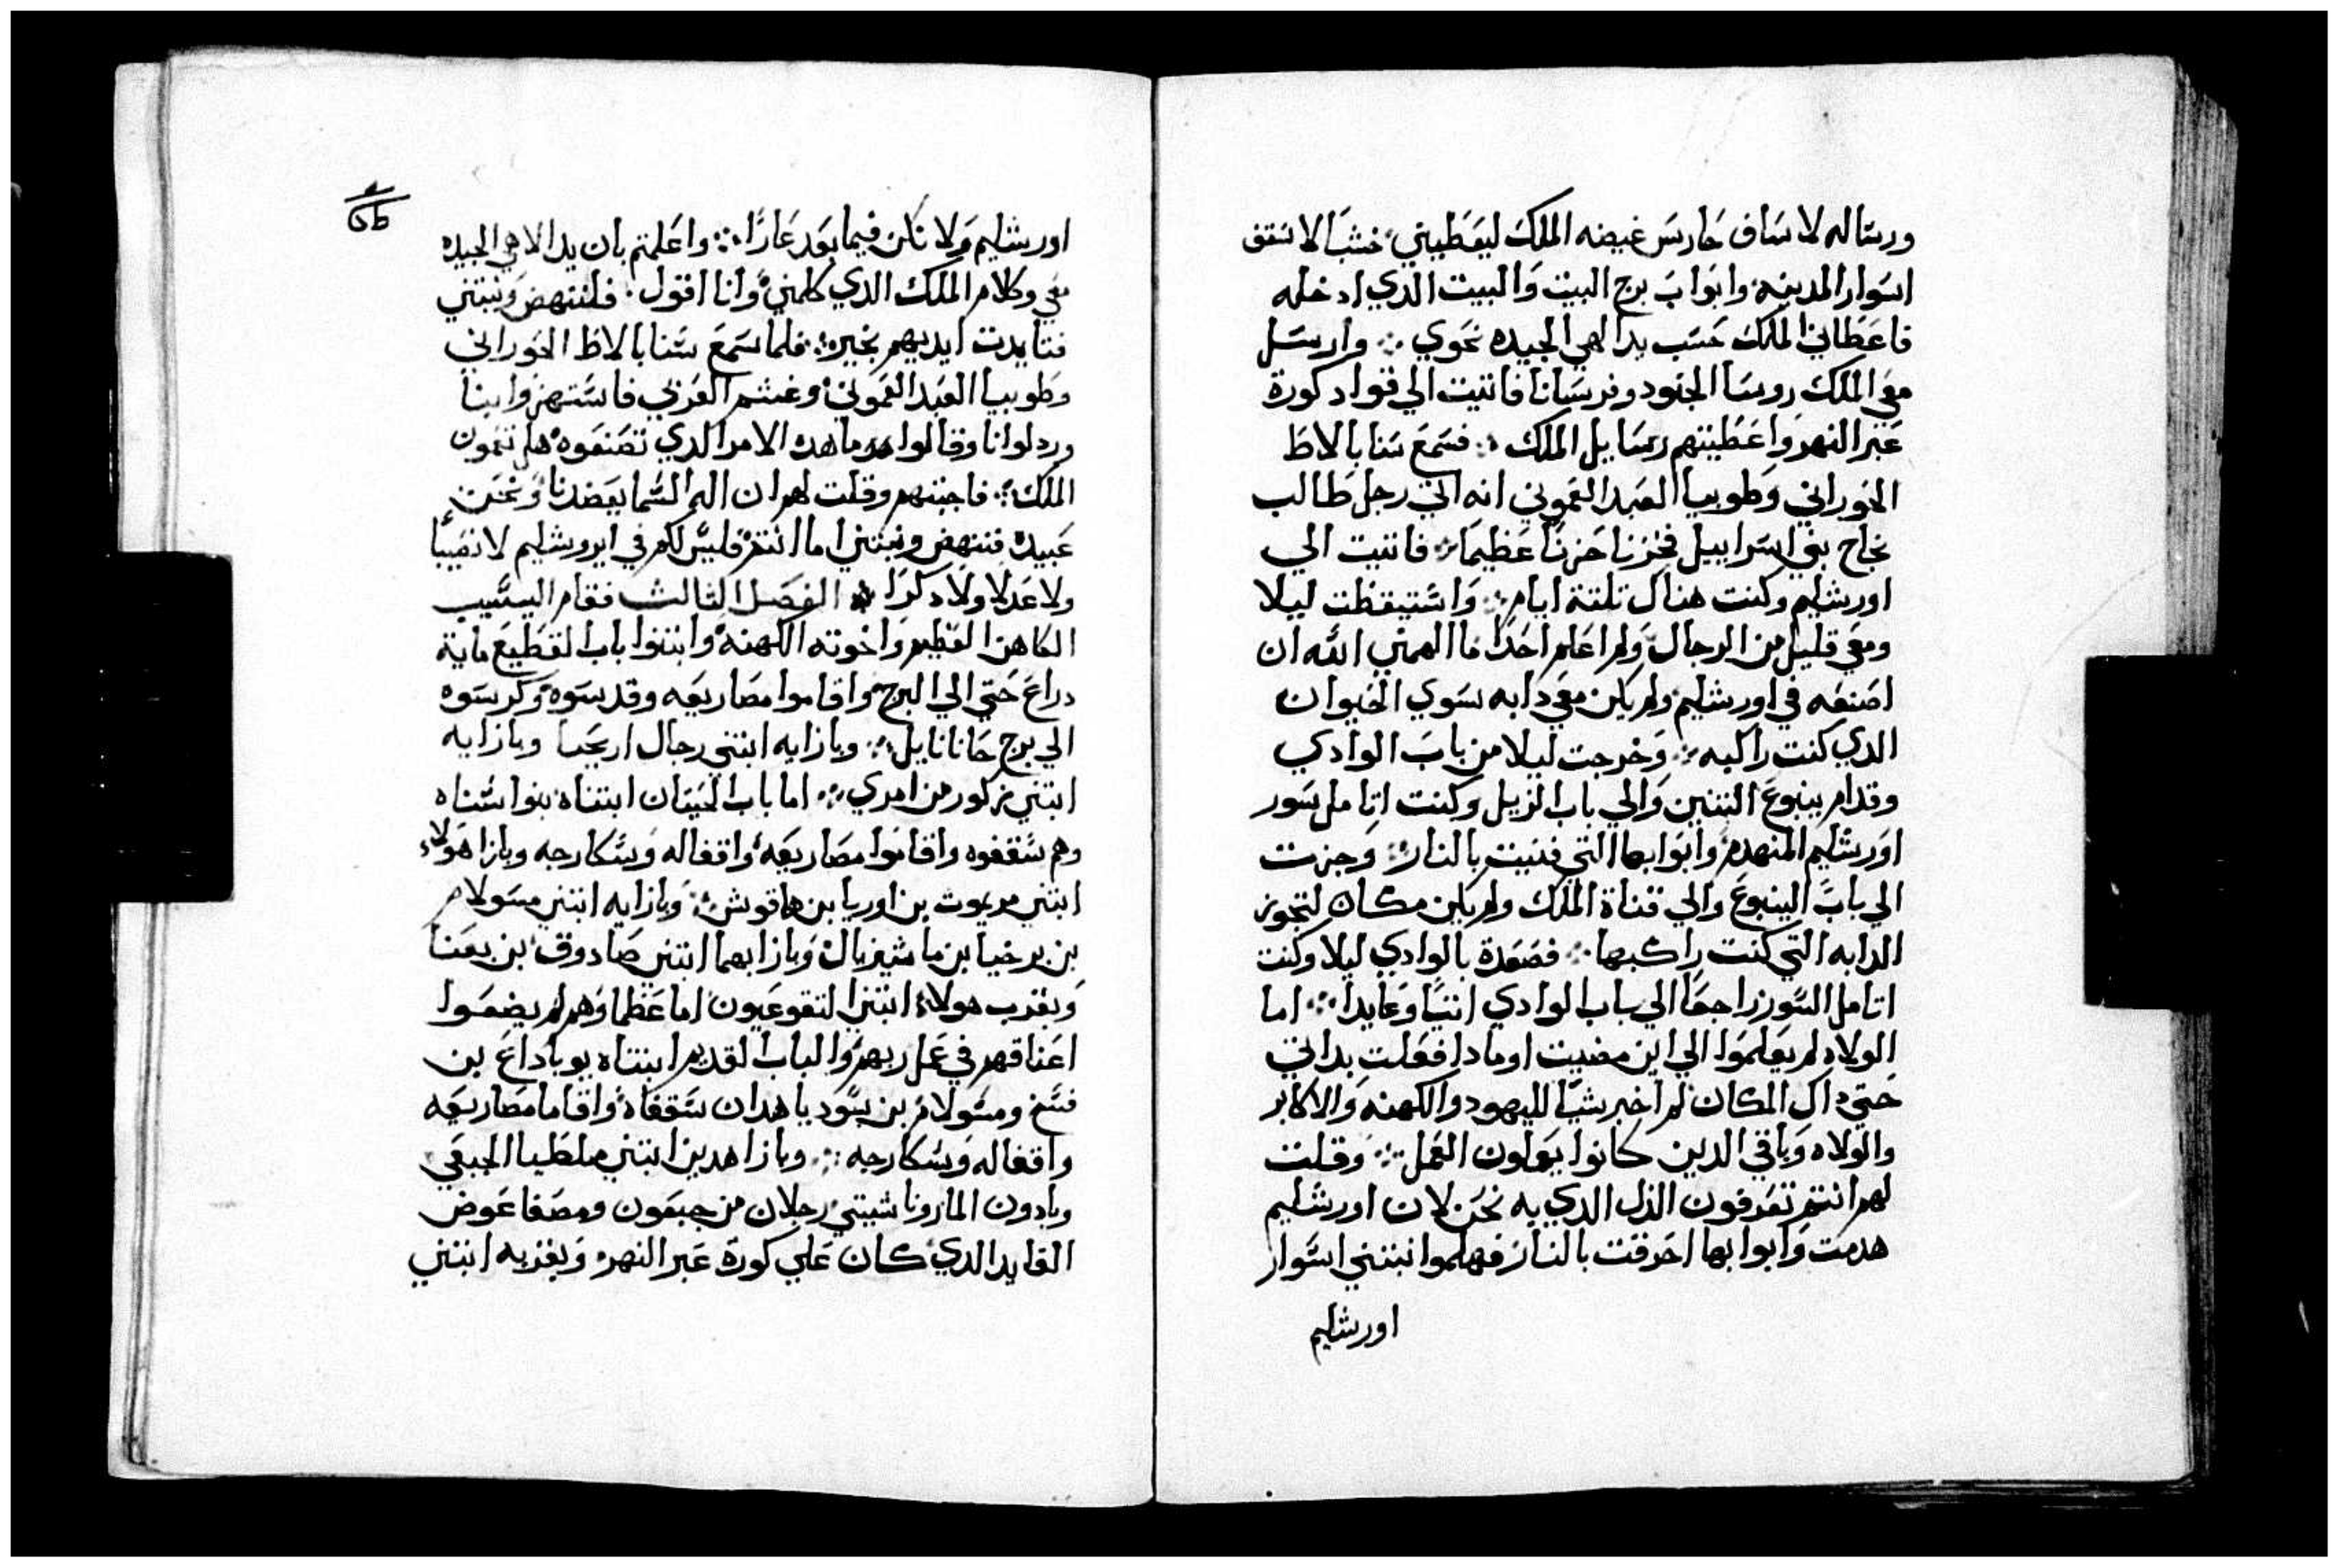 ورساله لاساف حارس غيضه الملك ليعطيني خشبا لاسقف
اسوار المدينه وابواب برج البيت والبيت الدي ادخله
فاعطاني الملك حسب يد الهي الجيده نحوي ؞ وارسل
معي الملك روسا الجنود وفرسانا فاتيت الي قواد كورة
عبر النهر واعطيتهم رسايل الملك ؞ فسمع سنابالاط
الحوراني وطوبيا العبد العموني انه اتي رجل طالب
نجاح بني اسراييل فحزنا حزنا عظيما ؞ فاتيت الي
اورشليم وكنت هناك تلتة ايام ؞ واستيقظت ليلا
ومعي قليل من الرجال ولم اعلم احدا ما الهمني الله ان
اصنعه في اورشليم ولم يكن معي دابه سوي الحيوان
الدي كنت راكبه ؞ وخرجت ليلا من باب الوادي
وقدام ينبوع التنين والي باب الزبل وكنت اتامل سور
اورشليم المنهدم وابوابها التي فنيت بالنار ؞ وجزت
الي باب الينبوع والي قناة الملك ولم يكن مكان لتجوز
الدابه التي كنت راكبها ؞ فصعدة بالوادي ليلا وكنت
اتامل السور راجعا الي باب الوادي اتيا وعايدا ؞ اما
الولاه لم يعلموا الي اين مضيت او مادا فعلت بداتي
حتي داك المكان لم اخبر شيا لليهود والكهنه والاكابر
والولاه وباقي الدين كانوا يعملون العمل ؞ وقلت
لهم انتم تعرفون الذل الدي به نحن لان اورشليم
هدمت وابوابها احرقت بالنار فهلموا نبتني اسوار
اورشليم
اورشليم ولا نكن فيما بعد عارا ؞ واعلمتم بان يد الاهي الجيده
معي وكلام الملك الدي كلمني وانا اقول فلننهض ونبتني
فتايدت ايديهم بخير ؞ فلما سمع سنابالاط الحوراني
وطوبيا العبد العموني وغشم العربي فاستهزوا بنا
وردلوانا وقالوا ما هدا الامر الدي تصنعوه هل تنمون
الملك ؞ فاجبتهم وقلت لهم ان اله السما يعضدنا ونحن
عبيده فننهض ونبتني اما انتم فليس لكم في ايروشليم لا نصيبا
ولا عدلا ولا دكرا ؞ الفصل التالت فقام اليشيب
الكاهن العظيم واخوته الكهنه وابتنوا باب القطيع ماية
دراع حتي الي البرج واقاموا مصاريعه وقدسوه وكرسوه
الي برج حانانايل ؞ وبازايه ابتني رجال اريحا وبازايه
ابتني زكور من امري ؞ اما باب الحيتان ابتناه بنوا سناه
وهم سقفوه واقاموا مصاريعه واقفاله وسكارجه وبازا هولاء
ابتني مريوت بن اوريا بن هاقوش ؞ وبازايه ابتني مسولام
بن برخيا بن ماشيزبال وبازايهما ابتني صادوق بن بعنا
وبقرب هولاء ابتنوا لتقوعيون اما عظماوهم لم يضعوا
اعناقهم في عمل ربهم والباب القديم ابتناه يوياداع بن
فسخ ومسولام بن بسوديا هدان سقفاه واقاما مصاريعه
واقفاله وسكارجه ؞ وبازا هدين ابتني ملطيا الجبعي
ويادون الماروناشيتي رجلان من جبعون ومصفا عوض
القايد الدي كان علي كورة عبر النهر وبغربه ابتني